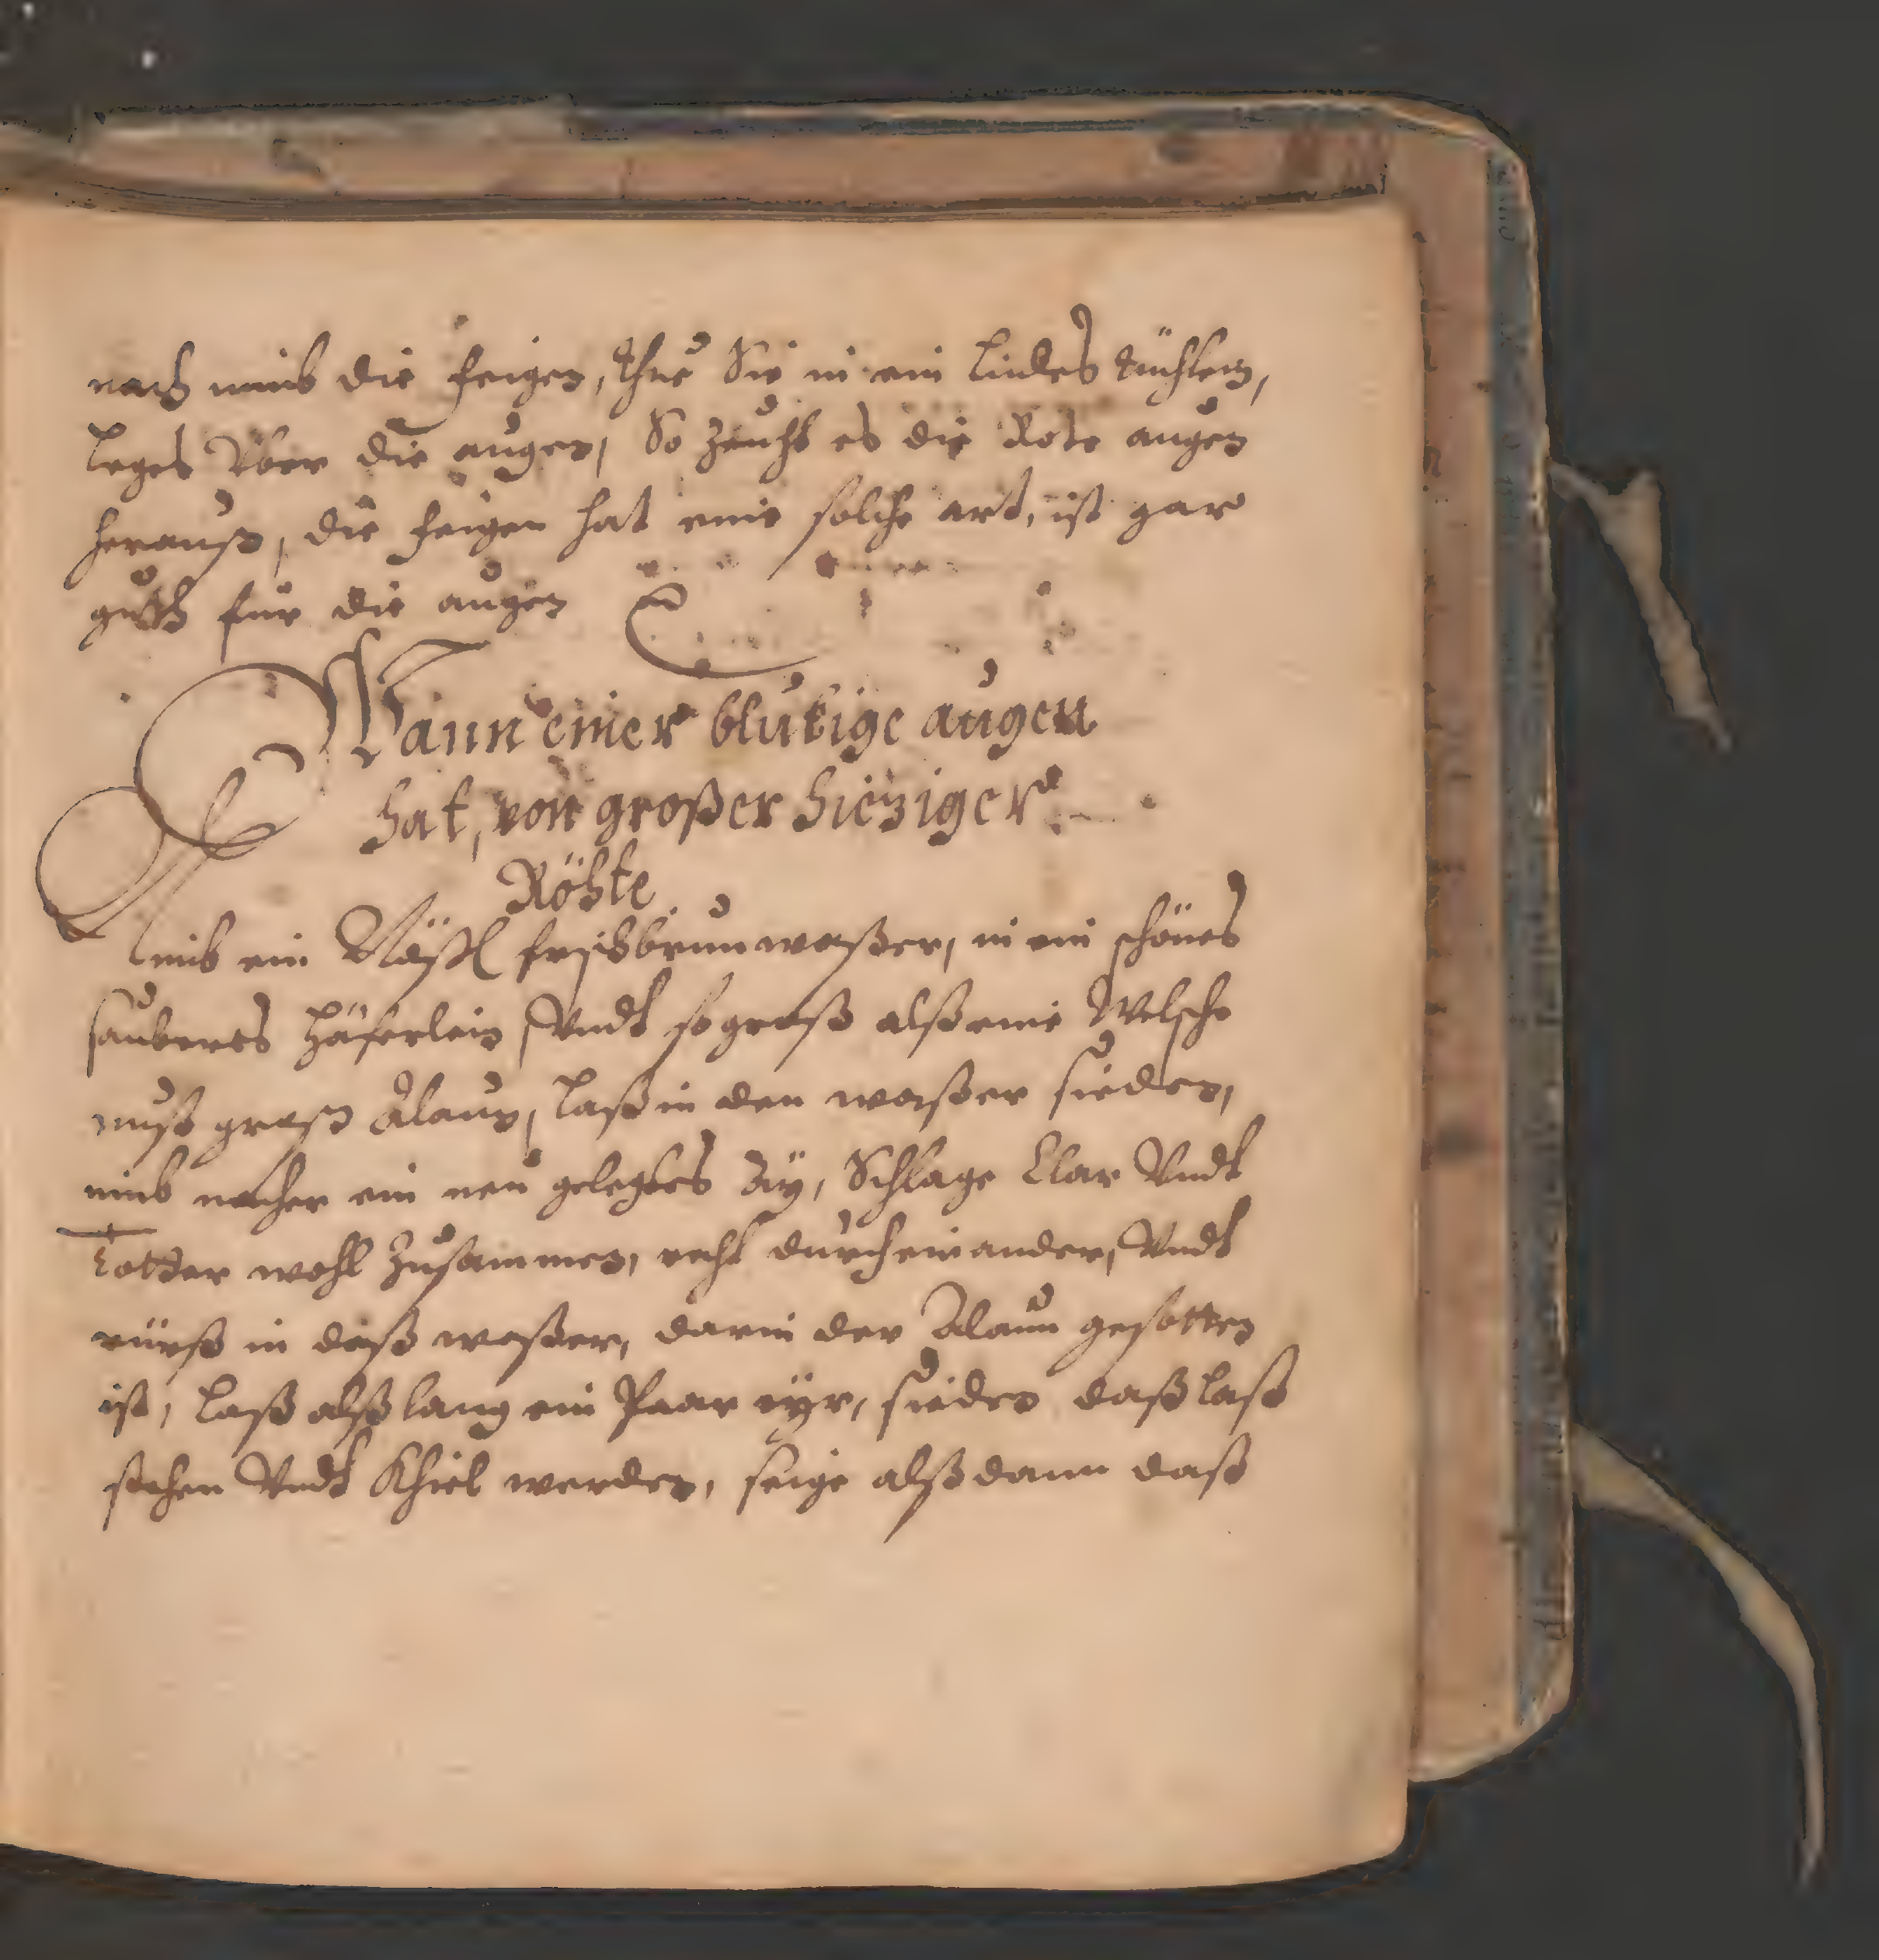 nach nimb die feigen, thue Sie in ein lindes tüchlein,
leges Vber die augen, So zeücht es die Röte augen
herauß, die feigen hat eine solche art, ist gar
guth für die augen
Wann einer blutige augen
hat, von großer hieziger
Röhte
Nimb ein Nößl frisch brunnwaßer, in ein schönes
sauberes Häferlein Vndt so groß alß eine Welsche
nuß groß Alaun, laß in den waßer sieden,
nimb nacher ein neu gelegtes Aÿ, Schlage Clar Vndt
Totter wohl zusammen, recht durcheinander, Vndt
rürß in daß waßer, darin der Alaun gesotten
ist, laß alß lang ein Paar eÿr, sieden daß laß
stehen Vndt Khiel werden, seige alßdann daß